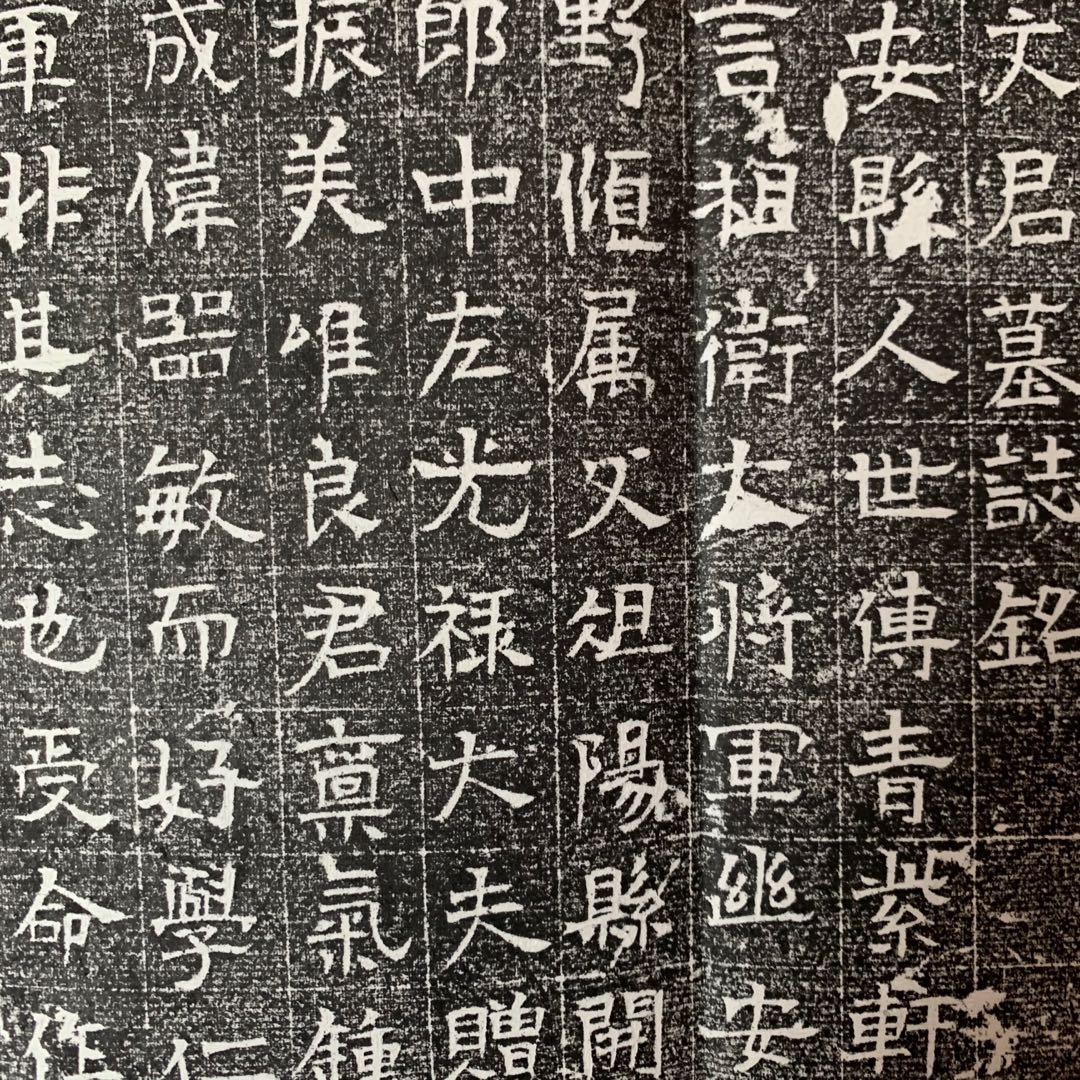 文君墓誌銘
安縣人世傳青紫軒
言祖衛大將軍幽安
野傾属父俎陽縣開
郎中左光禄大夫贈
振美唯良君稟氣鍾
成偉器敏而好學仁
軍非其志也受命作